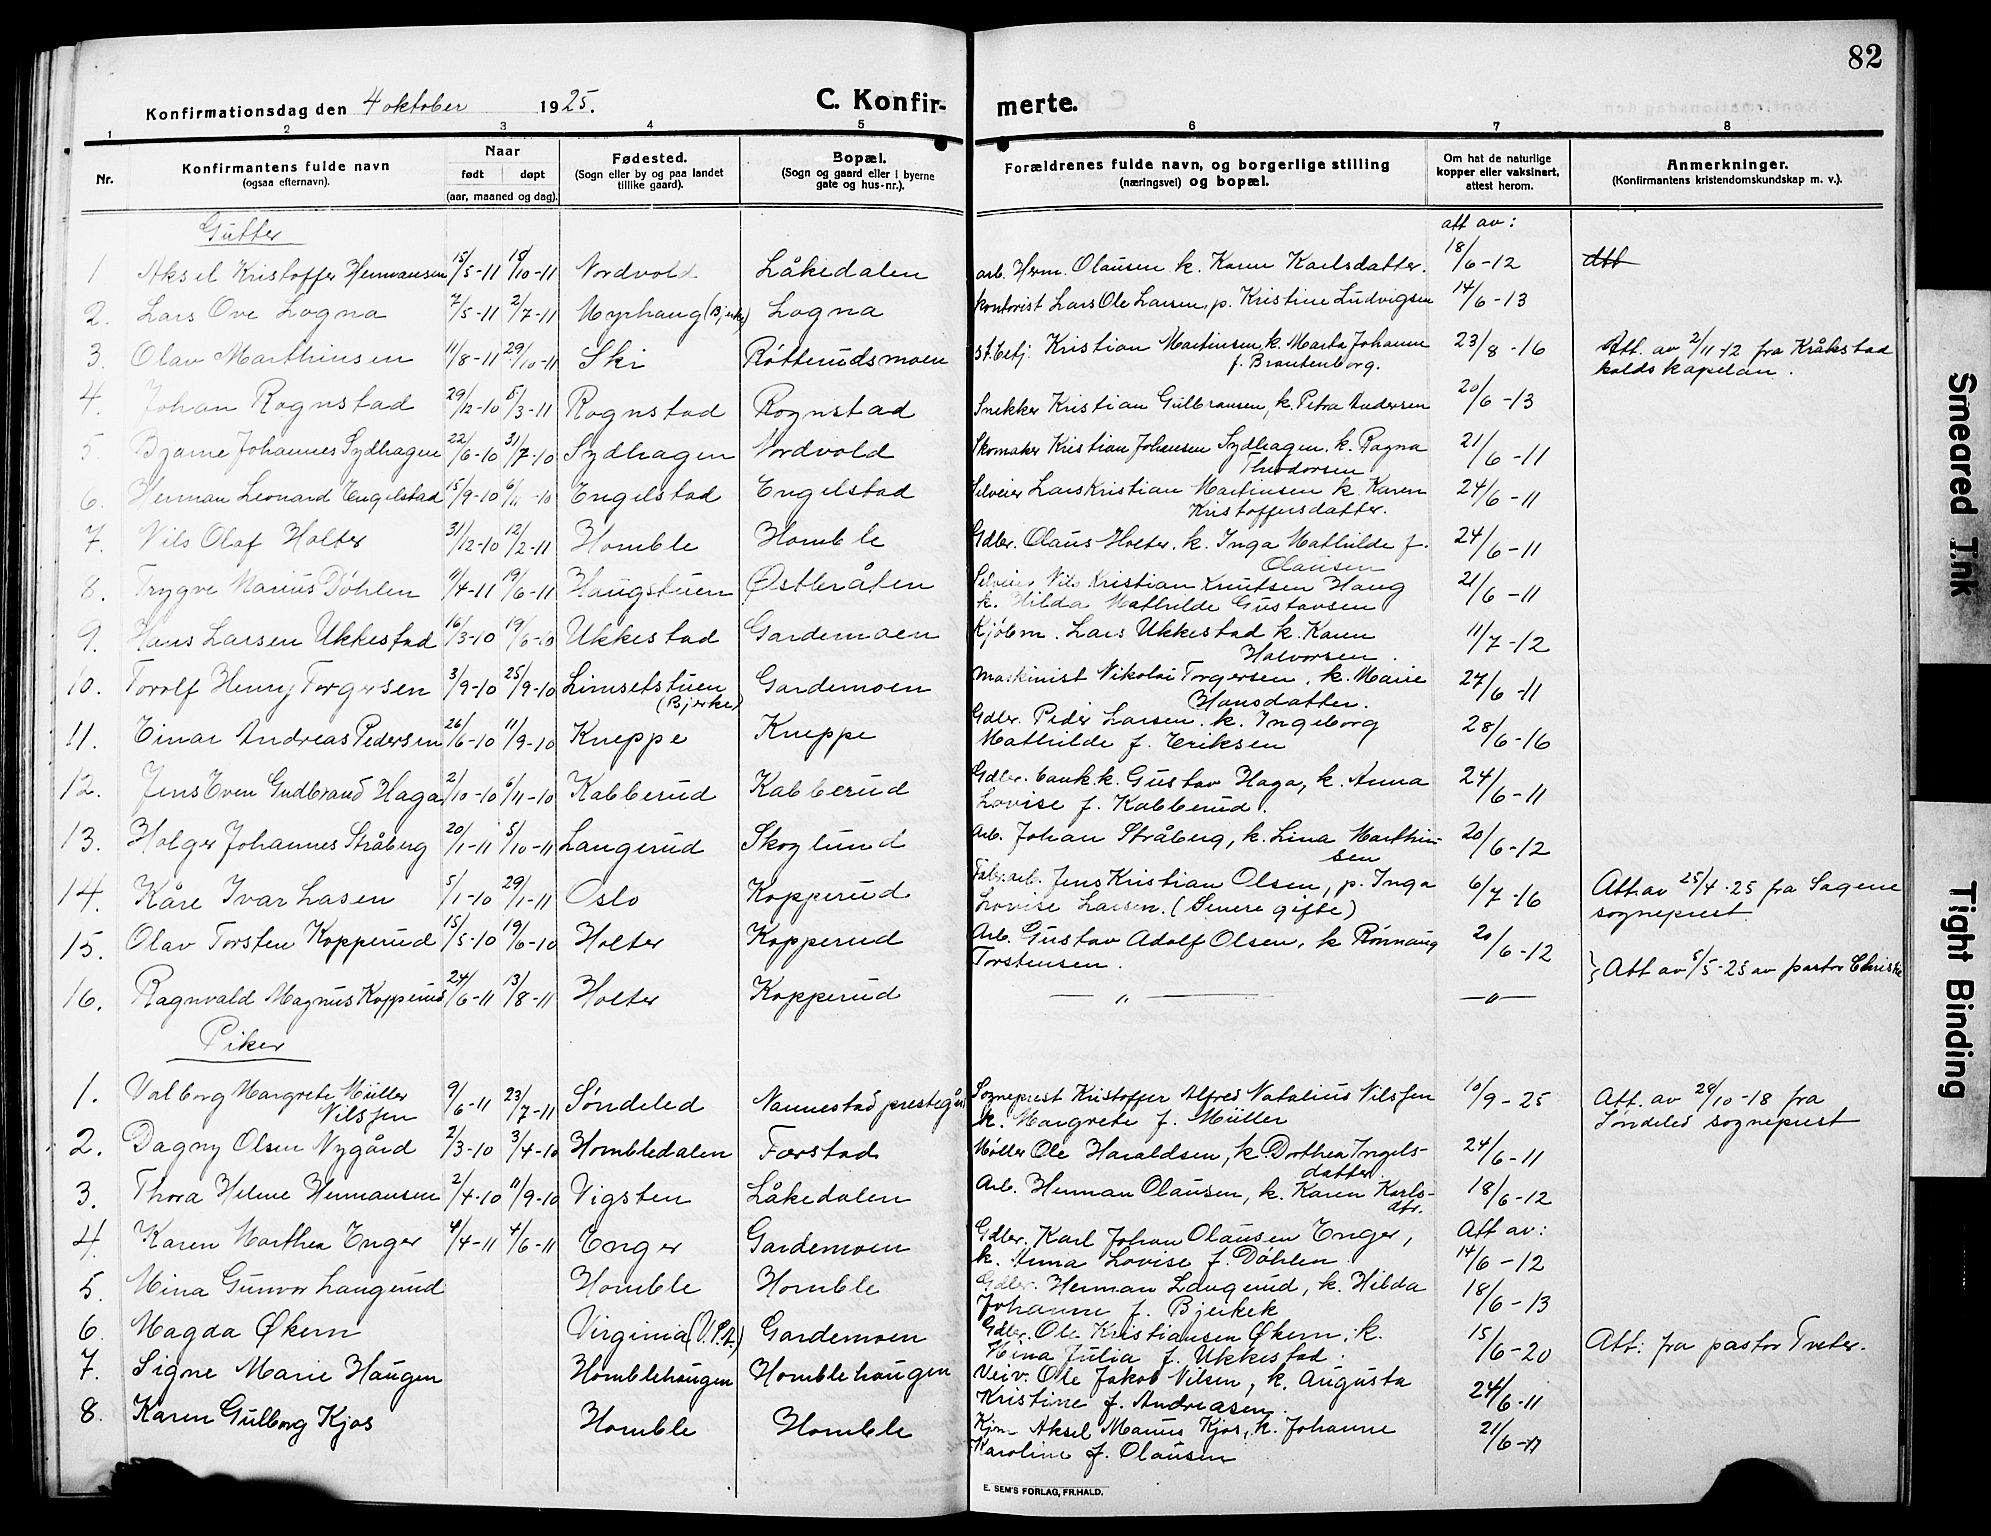 82
Konfirmationsdag den 4 oktober 1925. C. Konfir- merte.
1 2 3 4 5 6 7 8
Nr. Konfirmantens fulde navn (ogsaa efternavn). Naar født døpt (aar, maaned og dag). Fødested. (Sogn eller by og paa landet tillike gaard). Bopæl. (Sogn og gaard eller i byerne gate og hus-nr.). Forældrenes fulde navn, og borgerlige stilling (næringsvei) og bopæl. Om hat de naturlige kopper eller vaksinert, attest herom. Anmerkninger. (Konfirmantens kristendomskundskap m. v.).
Gutter att av:
1 Aksel Kristoffer Hermansen 15/5-11 15/10-11 Nordvold Låkedalen arb. Herm. Olausen k. Karen Karlsdatter. 18/6-12 Att
2. Lars Ove Logna 7/5-11 2/7-11 Myrhaug (Bjerke) Logna kontorist Lars Ole Larsen, p. Kristine Ludvigsen 14/6-13
3. Olav Marthinsen 11/8-11 29/10-11 Ski Røtterudsmoen st.betj. Kristian Martinsen, k. Marta Johanne 23/8-16 Att. av 2/11-12 fra Kråkstad
f. Brantenborg. kaldskapelan.
4. Johan Rognstad 29/12-10 5/3-11 Rognstad Rognstad Snekker Kristian Gulbransen, k. Petra Andersen 20/6-13
5. Bjarne Johannes Sydhagen 22/6-10 31/7-10 Sydhagen Nordvold Skomaker Kristian Johansen Sydhagen, k. Ragna 21/6-11
Theodorsen
6. Herman Leonard Engelstad 15/9-10 6/11-10 Engelstad Engelstad Selveier Lars Kristian Martinsen k. Karen 24/6-11
Kristoffersdatter.
7. Nils Olaf Holter 31/12-10 12/2-11 Homble Homble Gdbr. Olaus Holter, k. Inga Mathilde f. 24/6-11
Olausen
8. Trygve Marius Døhlen 11/4-11 19/6-11 Haugstuen Østbråten Selveier Nils Kristian Knutsen Haug 21/6-11
k. Hilda Mathilde Gustavsen
9. Hans Larsen Ukkestad 16/3-10 19/6-10 Ukkestad Gardemoen Kjøbm. Lars Ukkestad k. Karen 11/7-12
Halvorsen.
10. Torolf Henry Torgersen 3/9-10 25/9-10 Limsetstuen Gardemoen Maskinist Nikolai Torgersen, k. Marie 27/6-11
(Bjerke) Hansdatter.
11. Einar Andreas Pedersen 26/6-10 11/9-10 Kneppe Kneppe Gdbr. Peder Larsen. k. Ingeborg 28/6-16
Mathilde f. Eriksen
12. Jens Even Gudbrand Haga 2/10-10 6/11-10 Kabberud Kabberud Gdbr. bankk. Gustav Haga, k. Anna 24/6-11
Lovise f. Kabberud.
13. Holger Johannes Stråberg 20/1-11 5/10-11 Langerud Skoglund Arb. Johan Stråberg, k. Lina Marthin- 20/6-12
sen
14. Kåre Ivar Lasen 5/1-10 29/1-11 Oslo Kopperud Fabr.arb. Jens Kristian Olsen, p. Inga 6/7-16 Att. av 25/4-25 fra Sagene
Lovise Larsen. (Senere gifte) sogneprest
15. Olav Torsten Kopperud 15/5-10 19/6-10 Holter Kopperud Arb. Gustav Adolf Olsen, k Rønnaug 20/6-12
Torstensen. } Att av 5/5-25 av pastor Christie
16. Ragnvald Magnus Kopperud 24/6-11 13/8-11 Holter Kopperud — " — — " —
Piker
1. Valborg Margrete Müller 9/6-11 23/7-11 Søndeled Nannestad prestegår Sogneprest Kristoffer Alfred Natalius Nilssen 10/9-25 Att. av 28/10-18 fra
Nilssen k. Margrete f. Müller Søndeled sogneprest
2. Dagny Olsen Nygård 2/3-10 3/4-10 Hombledalen Færstad Møller Ole Haraldsen, k. Dorthea Ingels- 24/6-11
datter.
3. Thora Helene Hermansen 2/4-10 11/9-10 Vigsten Låkedalen Arb. Herman Olausen, k. Karen Karls- 18/6-12
dtr.
4. Karen Marthea Enger 4/4-11 4/6-11 Enger Gardemoen Gdbr. Karl Johan Olausen Enger, Att av:
k. Anna Lovise f. Døhlen. 14/6-12
5. Mina Gunvor Langerud Homble Homble Gdbr. Herman Langerud, k. Hilda 18/6-13
Johanne f. Bjerkek
6. Magda Økern Virginia (U.S.A.) Gardemoen Gdbr. Ole Kristiansen Økern, k. 15/6-20 Att: fra pastor Tveter.
Hina Julia f. Ukkestad.
7. Signe Marie Haugen Homblehaugen Homblehaugen Veiv. Ole Jakob Nilsen, k. Augusta 24/6-11
Kristine f. Andreasen.
8. Karen Gulborg Kjos Homble Homble Kjøm Aksel Marius Kjos, k. Johanne 21/6-11
Karoline f. Olausen
E. SEM'S FORLAG, FR.HALD.
Smeared Ink
Tight Binding